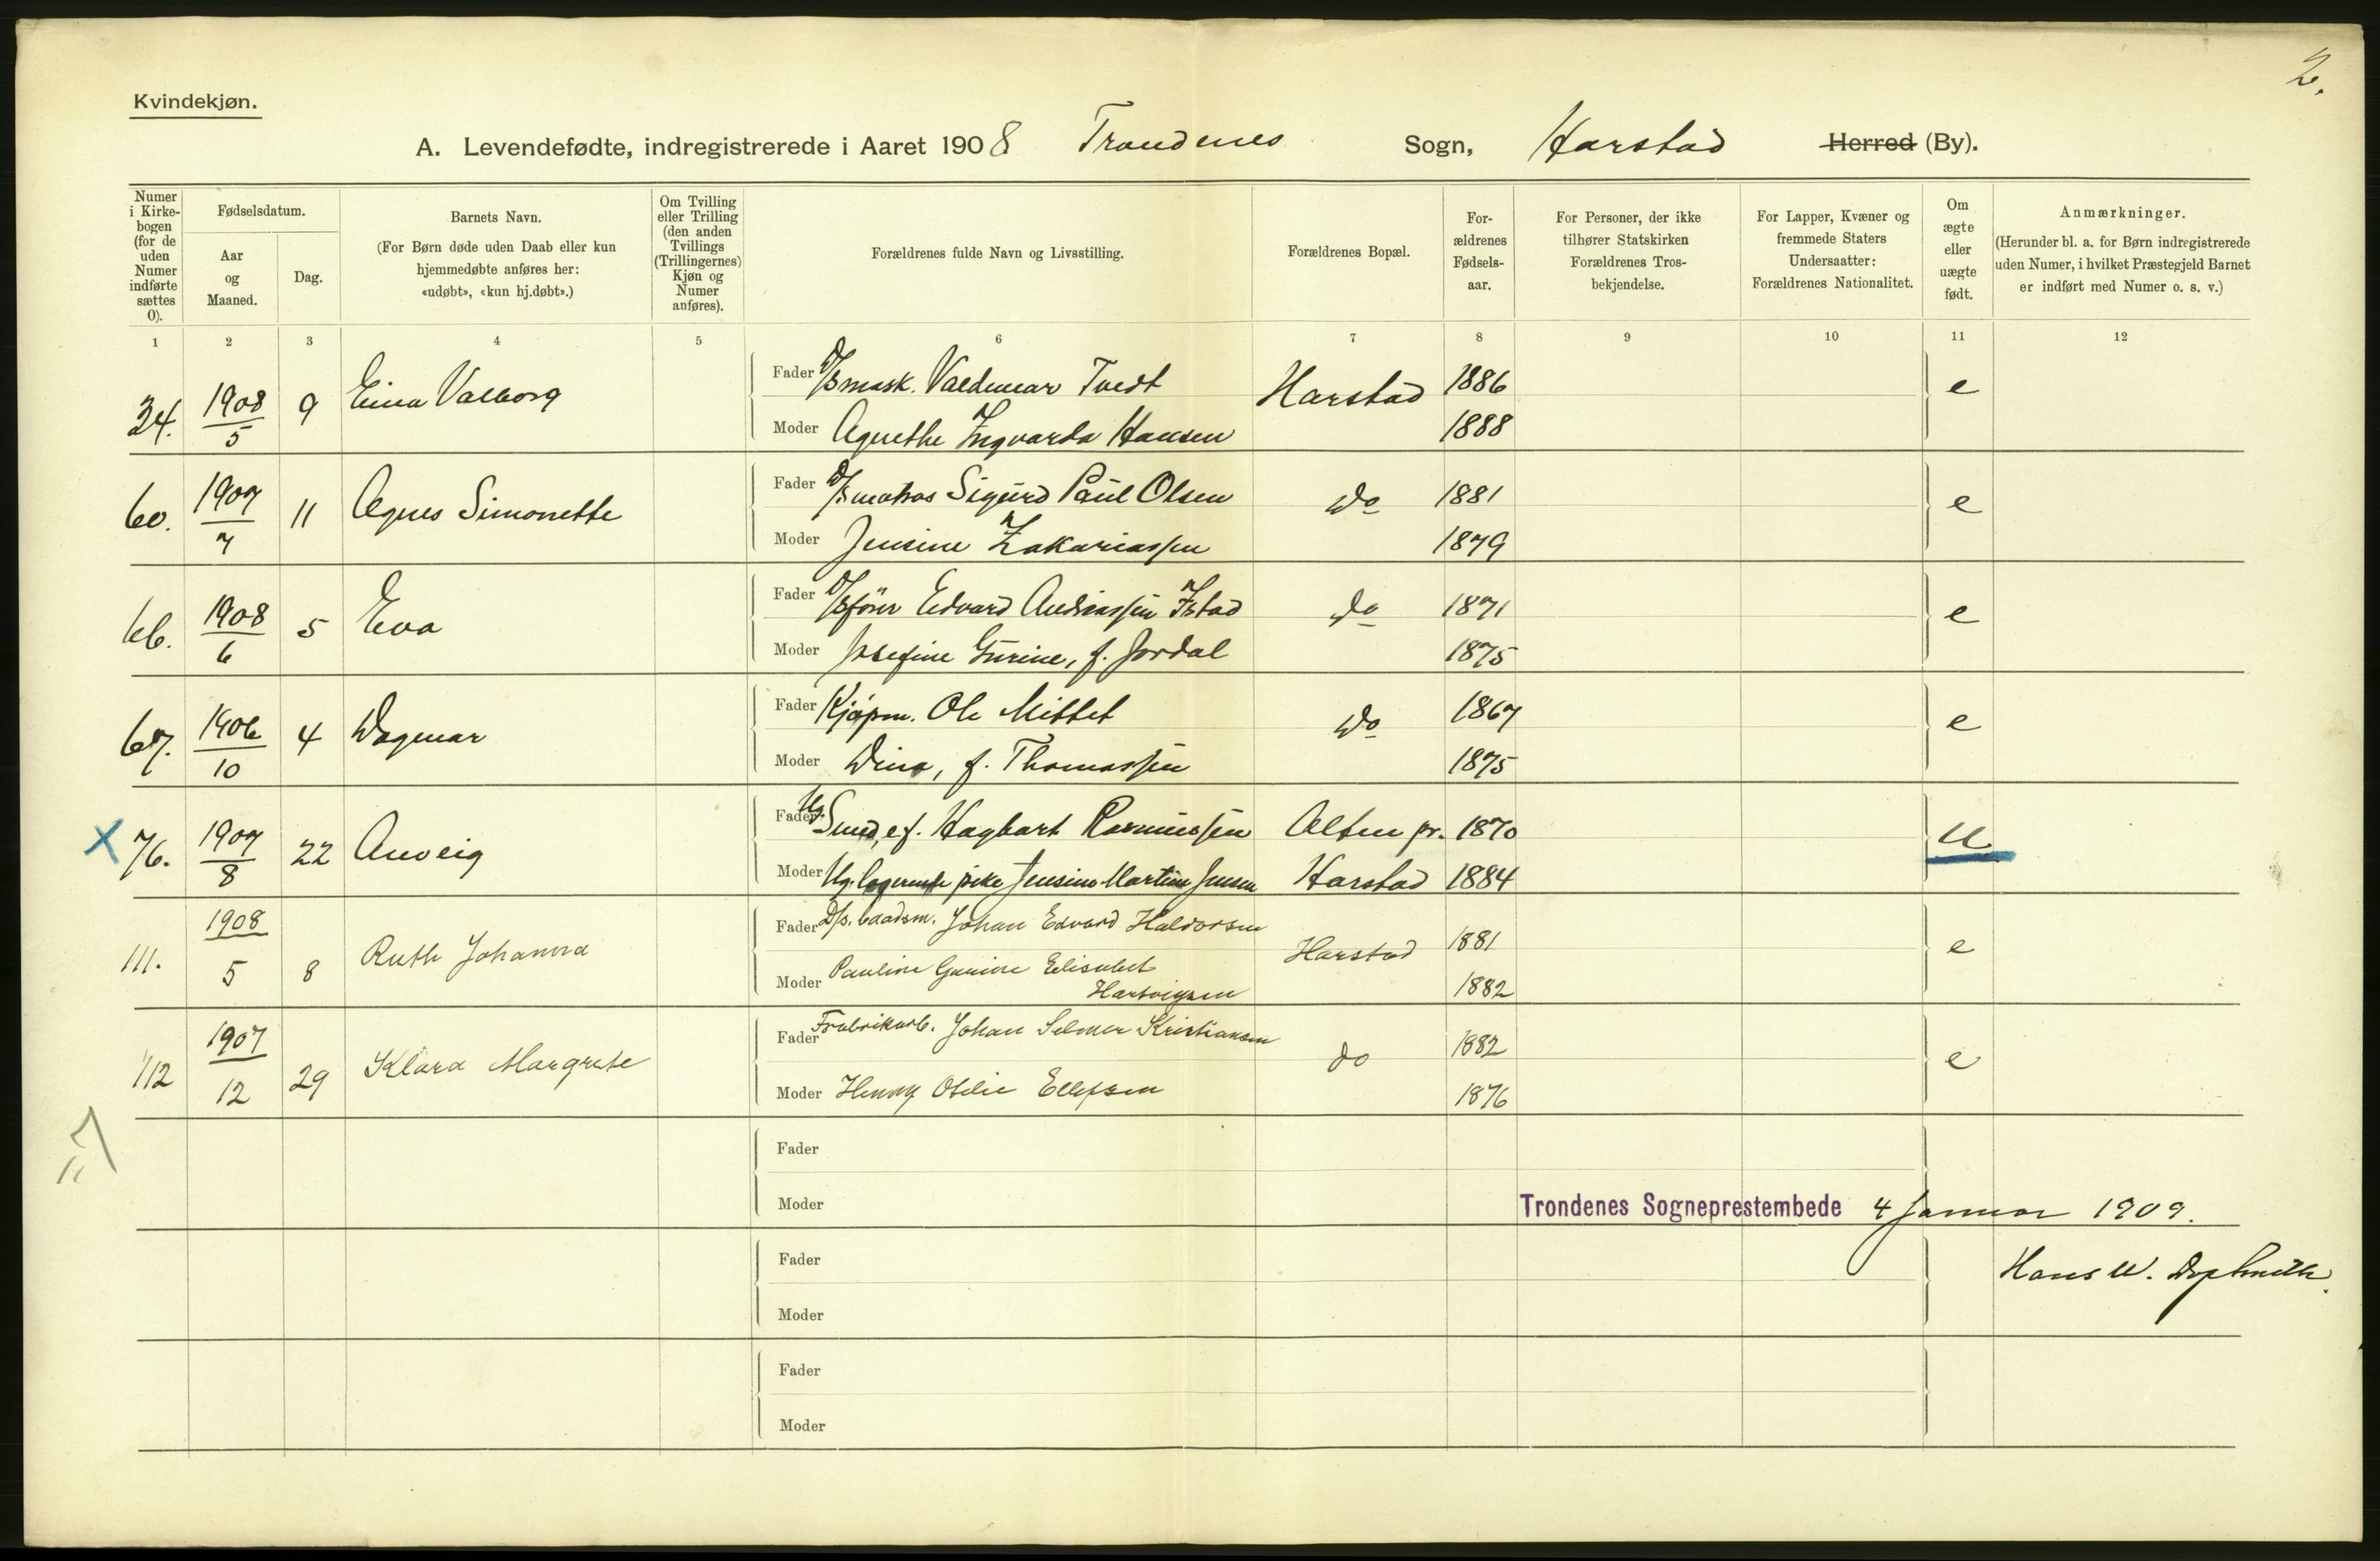 2.
Kvindekjøn.
A. Levendefødte, indregistrerede i Aaret 1908 Trondenes Sogn, Harstad Herred (By).
Numer i Kirkebogen (for de uden Numer indførte sættes 0).
Fødselsdatum.
Aar og Maaned.
Dag.
Barnets Navn.
(For Børn døde uden Daab eller kun hjemmedøbte anføres her: «udøbt», «kun hj.døbt».)
Om Tvilling eller Trilling (den anden Tvillings (Trillingernes) Kjøn og Numer anføres).
Forældrenes fulde Navn og Livsstilling.
Forældrenes Bopæl.
Forældrenes Fødselsaar.
For Personer, der ikke tilhører Statskirken Forældrenes Trosbekjendelse.
For Lapper, Kvæner og fremmede Staters Undersaatter: Forældrenes Nationalitet.
Om ægte eller uægte født.
Anmærkninger.
(Herunder bl. a. for Børn indregistrerede uden Numer, i hvilket Præstegjeld Barnet er indført med Numer o. s. v.)
1 2 3 4 5 6 7 8 9 10 11 12
34. 1908/5 9 Eina Valborg
Fader D/s mask. Valdemar Tvedt Harstad 1886 e
Moder Agnethe Ingvarda Hansen 1888
60. 1907/7 11 Agnes Simonette
Fader D/s matros Sigurd Paul Olsen Do 1881 e
Moder Jensine Zakariassen 1879
66. 1908/6 5 Eva
Fader D/s fører Edvard Andreassen Istad Do 1871 e
Moder Josefine Gurine, f. Jordal 1875
67. 1906/10 4 Dagmar
Fader Kjøpm. Ole Mittet Do 1867 e
Moder Dina, f. Thomassen 1875
X 76. 1907/8 22 Anveig
Fader Ug. Hagbart Rasmussen Alten pr. 1870 u
Moder Ug. pike Jensine Martine Jensen Harstad 1884
111. 1908/5 8 Ruth Johanna
Fader D/s. baadsm. Johan Edvard Haldorsen Harstad 1881 e
Moder Pauline Elisabet
Hartvigsen 1882
112 1907/12 29 Klara Margrete
Fader Fabrikarb. Johan Selmer Kristiansen do 1882 e
Moder Henny Otelie Ellefsen 1876
7
Fader
Moder
Trondenes Sogneprestembede 4 Januar 1909.
Fader
Hans W.
Moder
Fader
Moder